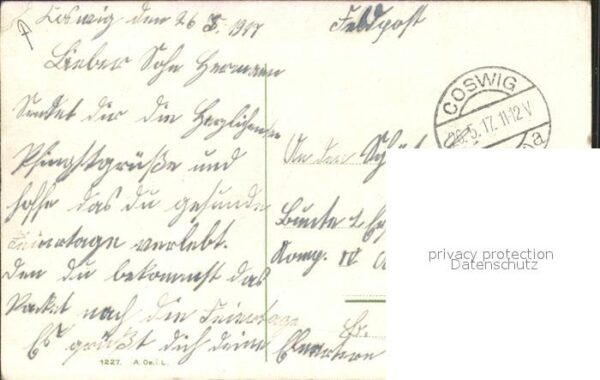 Coswig den 26 5. 1917
Feldpost
Lieber Sohn Hermann
Sendet dir die Herzlichsten
Pfingstgrüße und
hoffe das du gesunde
Feiertage verlebt.
den du bekommst das
Packet nach den Feiertage
Es grüßt dich deine
Elleartern
An den Schüt
Komp. IV
COSWIG
26.5.17.11-12V
privacy protection
Datenschutz
1227. A. Oe. i. L.